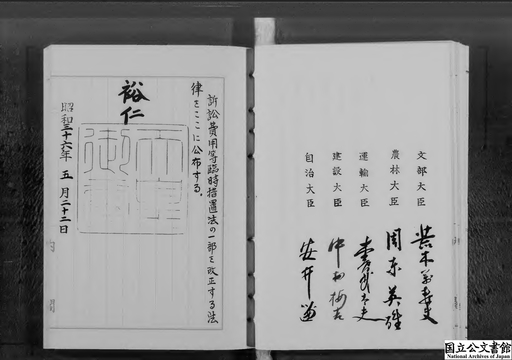 訴訟費用等臨時措置法の一部を改正する法
律をここに公布する。
裕仁
昭和三十六年 五月二十二日
文部大臣 荒木萬壽夫
農林大臣 周東英雄
運輸大臣
建設大臣 中村梅吉
自治大臣 安井謙
国立公文書館
National Archives of Japan